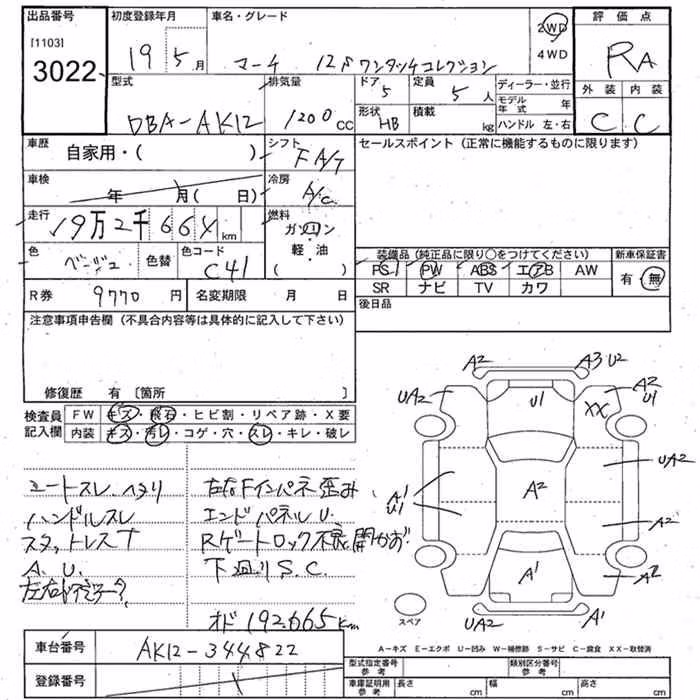 出品番号 初度登録年月 車名・グレード 2WD 評価点
[1103] 4WD
3022 19 5月 マーチ 12S ワンタッチコレクション RA
型式 排気量 ドア 定員 ディーラー・並行 外装 内装
5 5人 モデル年式 年
DBA-AK12 1200cc 形状 HB 積載 kg ハンドル 左・右 C C
車歴 自家用・( ) シフト FA/T セールスポイント (正常に機能するものに限ります)
車検 年 月( 日) 冷房 A/C
走行 19万2千664km 燃料 ガソリン・軽油( )
色 ベージュ 色替 色コード C41
装備品(純正品に限り○をつけてください) 新車保証書
PS PW ABS エアB AW 有・無
SR ナビ TV カワ
R券 9770円 名変期限 月 日 後日品
注意事項申告欄 (不具合内容等は具体的に記入して下さい)
修復歴 有 [箇所 ]
検査員記入欄 FW キズ・飛石・ヒビ割・リペア跡・X要
内装 キズ・汚レ・コゲ・穴・スレ・キレ・破レ
シートスレ、ヘタリ
ハンドルスレ
スタットレスT
A、U、
左右Fインパネ歪み
エンドパネルU、
Rゲートロック不良 開かず
下廻りS、C、
オド192,665km
A2 A3 U2
UA2 U1 A2 U1
XX
UA2
A1 U1 A2
A2
A1 A2
UA2 A1
スペア
車台番号 AK12-344822
A－キズ E－エクボ U－凹み W－補修跡 S－サビ C－腐食 XX－取替済
登録番号
型式指定番号 参考 類別区分番号 参考
車庫証明用 参考 長さ cm 幅 cm 高さ cm